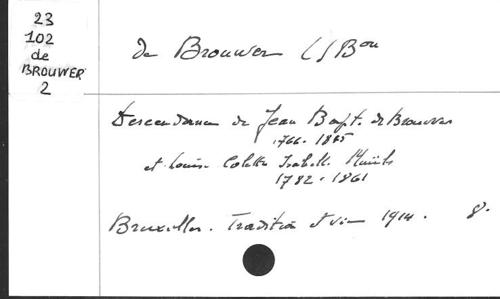 23
102
de
BROUWER
2
de Brouwer (J Bon
Descendance de Jean Bapt. de Brouwer
1766. 1845
et Louise Colette Isabelle
1782. 1861
Bruxelles. Tradition et vie 1914. 8.